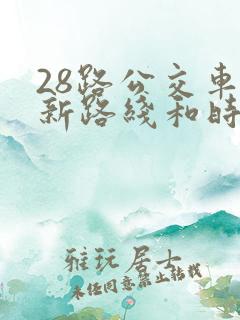 28路公交车
新路线和时
雅玩居士
未经同意禁止转载